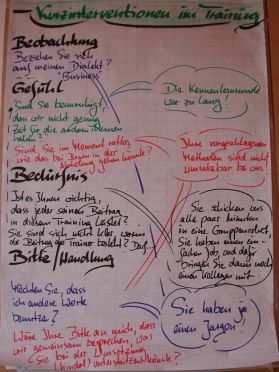 Kurzinterventionen im Training
Beobachtung
Beziehen Sie sich
auf meinen Dialekt?
"Business"
Gefühl
"Sind Sie beunruhigt,
dass wir nicht genug
Zeit für die anderen Themen
haben?"
Sind Sie im Moment ratlos
wie das bei Ihnen in der
Abteilung gehen könnte?
Bedürfnis
Ist es Ihnen wichtig,
dass jeder seinen Beitrag
in diesem Training leistet?
Sie sind sich nicht klar, worin
der Beitrag der Trainer besteht?
Bitte/Handlung
Möchten Sie, dass
ich andere Worte
benutze?
Wäre Ihre Bitte an mich, dass
wir gemeinsam besprechen, was
Sie bei der Umsetzung
unterstützen könnte?
Die Kennenlernrunde
war zu lang!
Ihre vorgeschlagenen
Methoden sind nicht
umsetzbar bei uns
Sie schicken uns
alle paar Minuten
in eine Gruppenarbeit,
Sie haben einen ein-
fachen Job, und dafür
bringen Sie dann noch
einen Kollegen mit
Sie haben ja
einen Jargon!